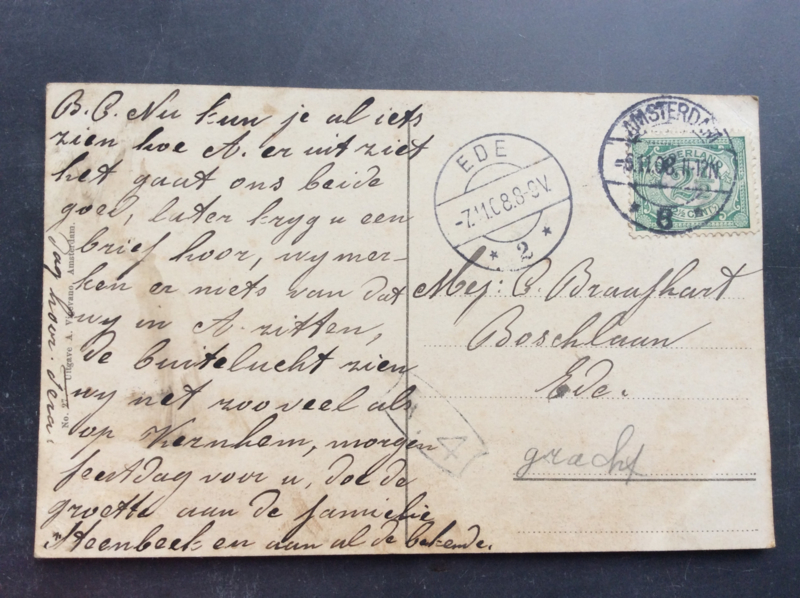 B. C. Nu kun je al iets
zien hoe A. er uit ziet
het gaat ons beide
goel, later kryg u een
brief hoor, wy mer-
ken er niets van dat
wy in A. zitten,
de buitelucht zien
wy net zooveel als
op Kernhem, morgen
feestdag voor u, doe de
groette aan de familie
Steenbeek en aan al de bekende.
Dag hoor.
No. 27. Uitgave A. Amsterdam.
EDE
-7.11.08.8-9V.
* 2 *
AMSTERDAM
.11.08.11-12N
* 8
NEDERLAND
2½
CENT
Mej: C. Braafhart
Boschlaan
Ede.
gracht
4